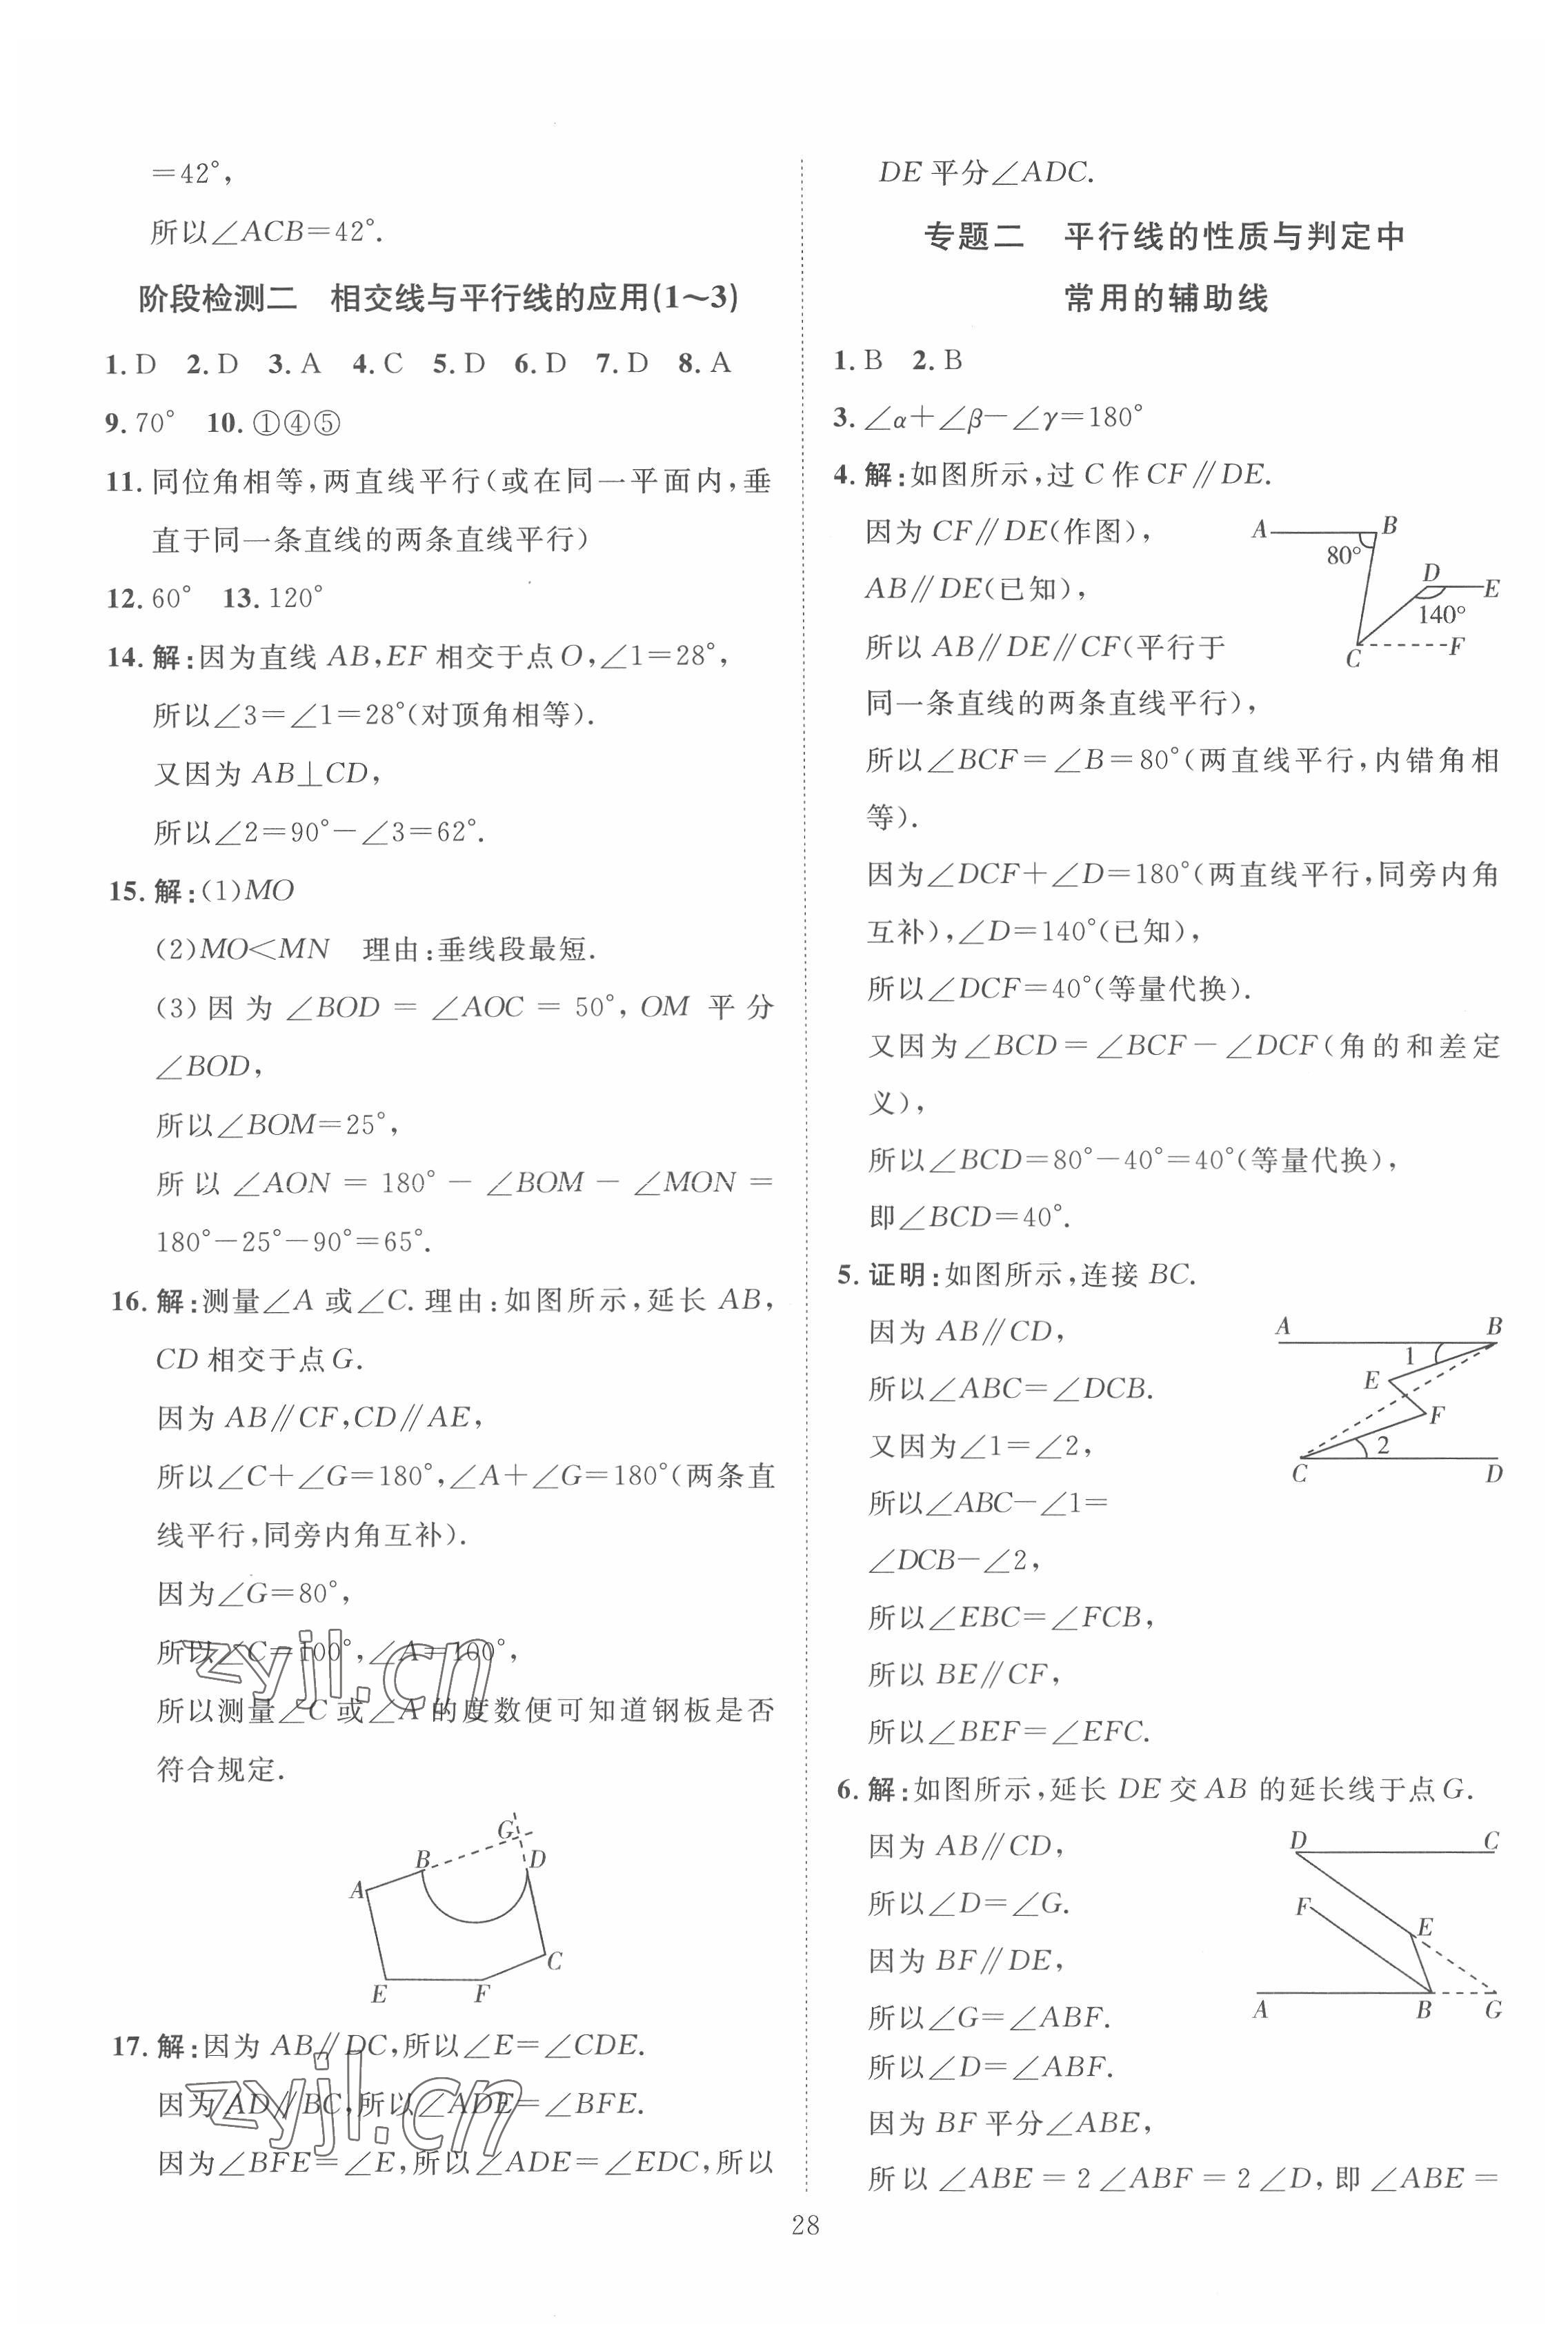 =42°,
所以∠ACB=42°.
阶段检测二　相交线与平行线的应用(1～3)
1. D　2. D　3. A　4. C　5. D　6. D　7. D　8. A
9. 70°　10. ①④⑤
11. 同位角相等,两直线平行(或在同一平面内,垂
直于同一条直线的两条直线平行)
12. 60°　13. 120°
14. 解:因为直线 AB,EF 相交于点O,∠1=28°,
所以∠3=∠1=28°(对顶角相等).
又因为 AB⊥CD,
所以∠2=90°－∠3=62°.
15. 解:(1)MO
(2)MO<MN　理由:垂线段最短.
(3) 因为 ∠BOD = ∠AOC = 50°, OM 平分
∠BOD,
所以∠BOM=25°,
所以 ∠AON = 180° － ∠BOM － ∠MON =
180°－25°－90°=65°.
16. 解:测量∠A 或∠C. 理由:如图所示,延长 AB,
CD 相交于点G.
因为 AB∥CF,CD∥AE,
所以∠C+∠G=180°,∠A+∠G=180°(两条直
线平行,同旁内角互补).
因为∠G=80°,
所以∠C=100°,∠A=100°,
所以测量∠C 或∠A 的度数便可知道钢板是否
符合规定.
G
B
D
A
C
E
F
17. 解:因为 AB∥DC,所以∠E=∠CDE.
因为 AD∥BC,所以∠ADE=∠BFE.
因为∠BFE=∠E,所以∠ADE=∠EDC,所以
DE 平分∠ADC.
专题二　平行线的性质与判定中
常用的辅助线
1. B　2. B
3. ∠α+∠β－∠γ=180°
4. 解:如图所示,过 C 作 CF∥DE.
因为 CF∥DE(作图),
AB∥DE(已知),
所以 AB∥DE∥CF(平行于
A
B
80°
D
E
140°
C
F
同一条直线的两条直线平行),
所以∠BCF=∠B=80°(两直线平行,内错角相
等).
因为∠DCF+∠D=180°(两直线平行,同旁内角
互补),∠D=140°(已知),
所以∠DCF=40°(等量代换).
又因为∠BCD=∠BCF－∠DCF(角的和差定
义),
所以∠BCD=80°－40°=40°(等量代换),
即∠BCD=40°.
5. 证明:如图所示,连接 BC.
因为 AB∥CD,
所以∠ABC=∠DCB.
又因为∠1=∠2,
所以∠ABC－∠1=
∠DCB－∠2,
所以∠EBC=∠FCB,
所以 BE∥CF,
所以∠BEF=∠EFC.
A
B
1
E
F
2
C
D
6. 解:如图所示,延长 DE 交 AB 的延长线于点G.
因为 AB∥CD,
所以∠D=∠G.
因为 BF∥DE,
所以∠G=∠ABF.
所以∠D=∠ABF.
因为 BF 平分∠ABE,
所以 ∠ABE = 2 ∠ABF = 2 ∠D, 即 ∠ABE =
D
C
F
E
A
B
G
28
zyjl.cn
zyjl.cn